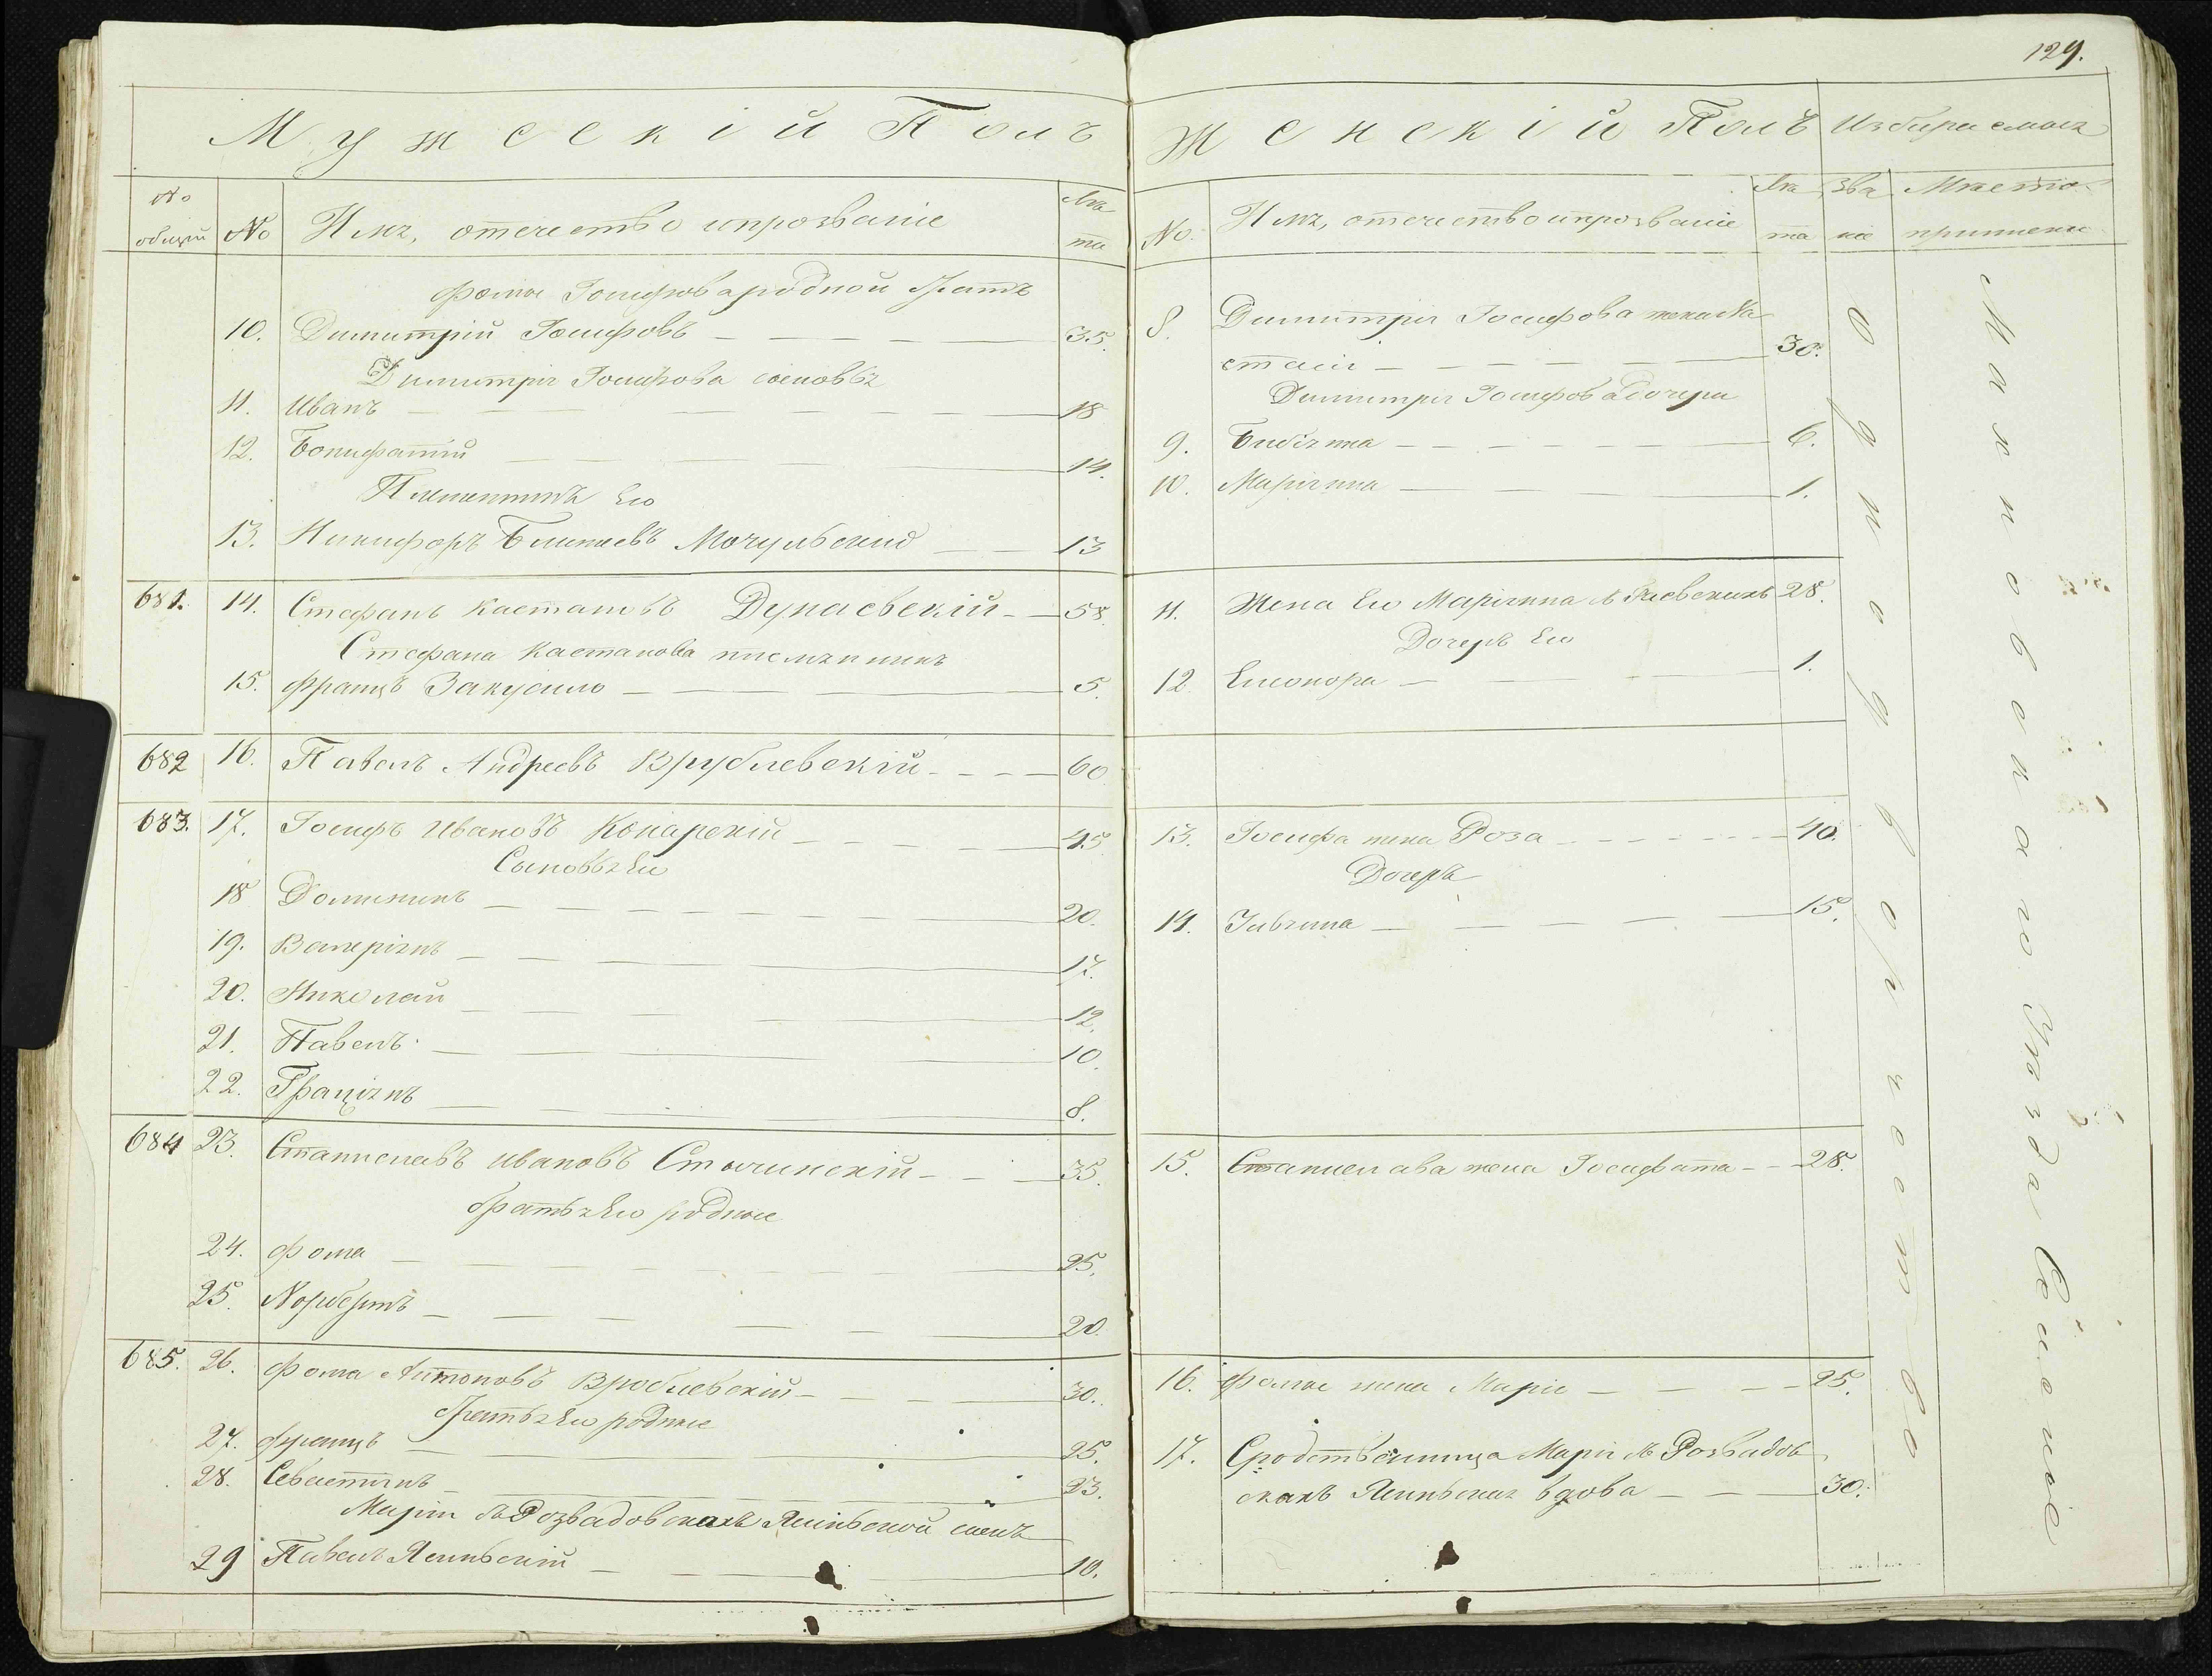 129.
Мужескій Полъ
№ общій
№
Имя, отечество и прозваніе
Лѣта
Фомы Іосифова родной братъ
10. Димитрій Іосифовъ 35.
Димитрія Іосифова сыновья
11. Иванъ 18
12. Бонифатій 14.
Племянникъ Его
13. Никифоръ Мочульскій 13
681. 14. Стефанъ Каетановъ Дунаевскій 58.
Стефана Каетанова племянникъ
15. Францъ Закусило 5.
682 16. Павелъ Андреевъ Врублевскій 60
683. 17. Іосифъ Ивановъ Конарскій 45
Сыновья Его
18 Доминикъ 20.
19. Валеріянъ 17.
20. Николай 12.
21. Павелъ 10.
22. Граціянъ 8.
684 23. Станиславъ Ивановъ 35.
Братья Его родные
24. Фома 25.
25. Норбертъ 20.
685. 26. Фома Антоновъ Вроблевскій 30.
Братья Его родные
27. Францъ 25.
28. Севастіянъ 23.
Маріи съ Розвадовскихъ Ясиньской сынъ
29 Павелъ Ясиньскій 10.
Женскій Полъ
Избираемыя
№.
Имя, отечество и прозваніе
Лѣта
Званіе
Мѣсто приписки
8. Димитрія Іосифова жена На
стасія 30.
Димитрія Іосифова дочери
9. 6.
10. Маріянна 1.
11. Жена Его Маріянна съ 28.
Дочерь Его
12. Елеонора 1.
13. Іосифа жена Роза 40.
Дочерь
14. 15.
15. Станислава жена Іосифата 28.
16. Фомы жена Марія 25.
17. Сродственница Марія съ Розвадов
скихъ Ясиньская вдова 30.
Однодворчество
Махновскаго Уѣзда Селеніе